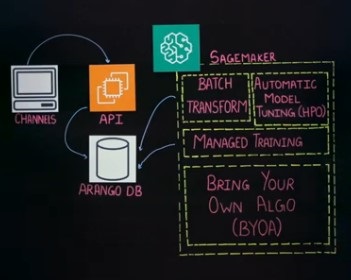 SAGEMAKER
CHANNELS
API
ARANGO DB
BATCH
TRANSFORM
AUTOMATIC
MODEL
TUNING (HPO)
MANAGED TRAINING
BRING YOUR
OWN ALGO
(BYOA)